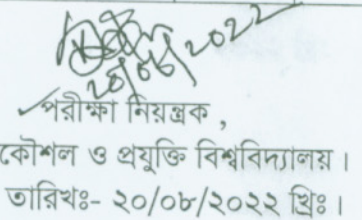 ২০/০৮/২০২২
পরীক্ষা নিয়ন্ত্রক,
কৌশল ও প্রযুক্তি বিশ্ববিদ্যালয়।
তারিখঃ- ২০/০৮/২০২২ খ্রিঃ।